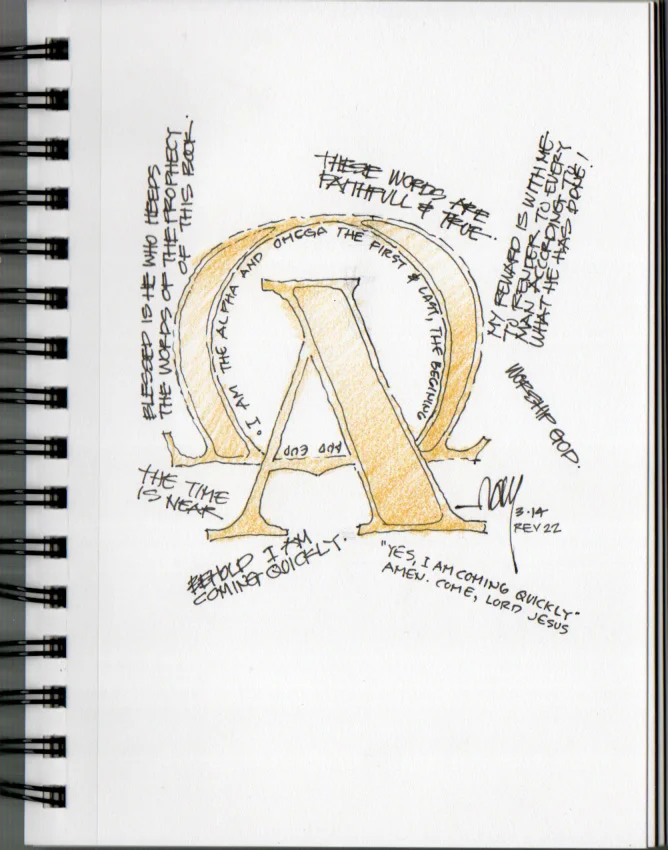 BLESSED IS HE WHO HEEDS
THE WORDS OF THE PROPHECY
OF THIS BOOK.
THESE WORDS ARE
FAITHFULL & TRUE.
MY REWARD IS WITH ME
TO RENDER TO EVERY
MAN ACCORDING TO
WHAT HE HAS DONE!
WORSHIP GOD.
"I AM THE ALPHA AND OMEGA THE FIRST & LAST, THE BEGINING
AND END
A
THE TIME
IS NEAR
BEHOLD I AM
COMING QUICKLY.
3.14
REV 22
"YES, I AM COMING QUICKLY"
AMEN. COME, LORD JESUS